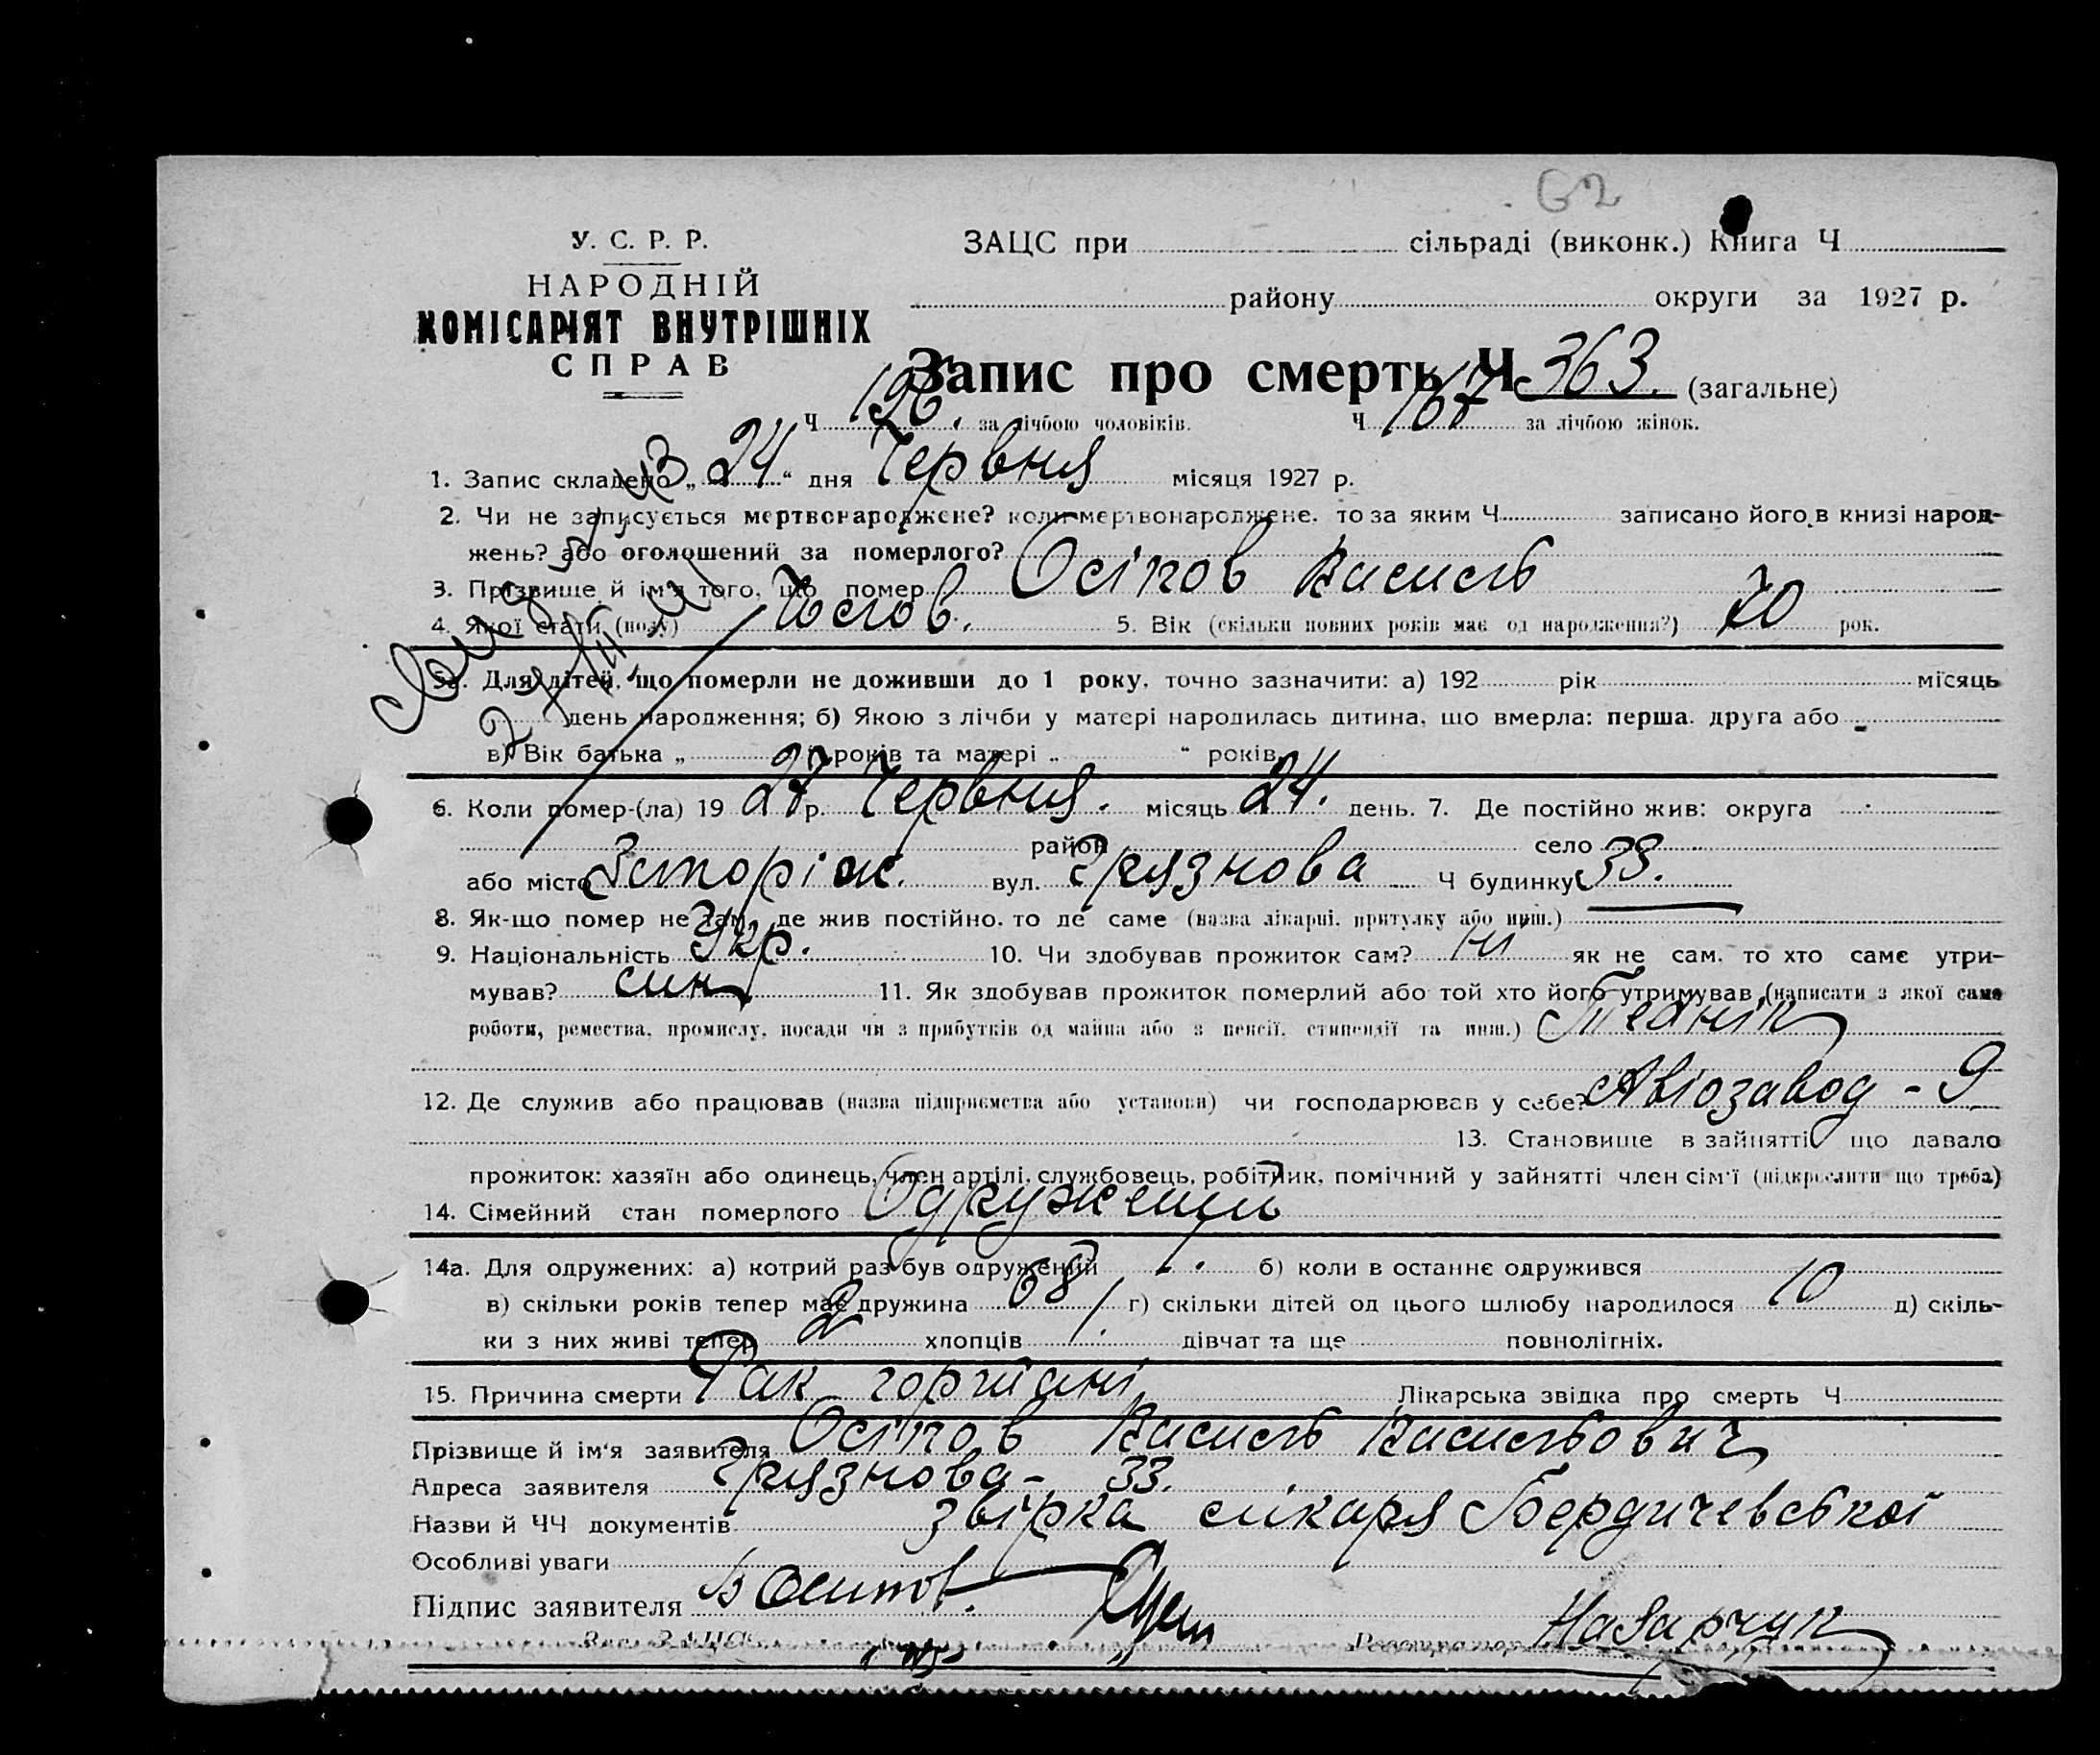 62
У. С. Р. Р.
НАРОДНІЙ
КОМІСАРІЯТ ВНУТРІШНІХ
СПРАВ
ЗАЦС при сільраді (виконк.) Книга Ч
району округи за 1927 р.
Запис про смерть Ч 363. (загальне)
Ч 196. за лічбою чоловіків. Ч 167 за лічбою жінок.
1. Запис складено „ 24 “ дня Червня місяця 1927 р.
2. Чи не записується мертвонароджене? коли мертвонароджене, то за яким Ч записано його в книзі народ-
жень? або оголошений за померлого?
3. Прізвище й ім'я того, що помер Осіпов Василь
4. Якої статі (полу) Чолов. 5. Вік (скільки повних років має од народження?) 70 рок.
5а. Для дітей, що померли не доживши до 1 року, точно зазначити: а) 192 рік місяць
день народження; б) Якою з лічби у матері народилась дитина, що вмерла: перша, друга або
в) Вік батька „ “ років та матері „ “ років
6. Коли помер-(ла) 19 27 р. Червня. місяць 24. день. 7. Де постійно жив: округа
район село
або місто Запоріж. вул. Грязнова Ч будинку 33.
8. Як-що помер не там, де жив постійно, то де саме (назва лікарні, притулку або инш.)
9. Національність Укр. 10. Чи здобував прожиток сам? ні як не сам, то хто саме утри-
мував? син 11. Як здобував прожиток померлий або той хто його утримував (написати з якої саме
роботи, ремества, промислу, посади чи з прибутків од майна або з пенсії, стипендії та инш.) Технік
12. Де служив або працював (назва підприємства або установи) чи господарював у себе? Авіозавод - 9
13. Становище в зайнятті що давало
прожиток: хазяїн або одинець, член артілі, службовець, робітник, помічний у зайнятті член сім'ї (підкреслити що треба)
14. Сімейний стан померлого Одружений
14а. Для одружених: а) котрий раз був одружений 1. б) коли в останнє одружився
в) скільки років тепер має дружина 68 г) скільки дітей од цього шлюбу народилося 10 д) скіль-
ки з них живі тепер 2 хлопців 1. дівчат та ще повнолітніх.
15. Причина смерти Рак гортані Лікарська звідка про смерть Ч
Прізвище й ім'я заявителя Осіпов Василь Васильович
Адреса заявителя Грязнова - 33.
Назви й ЧЧ документів звірка лікаря Бердичевської
Особливі уваги
Підпис заявителя В Осипов.
Зав. ЗАЦС Реєстратор Назарчук